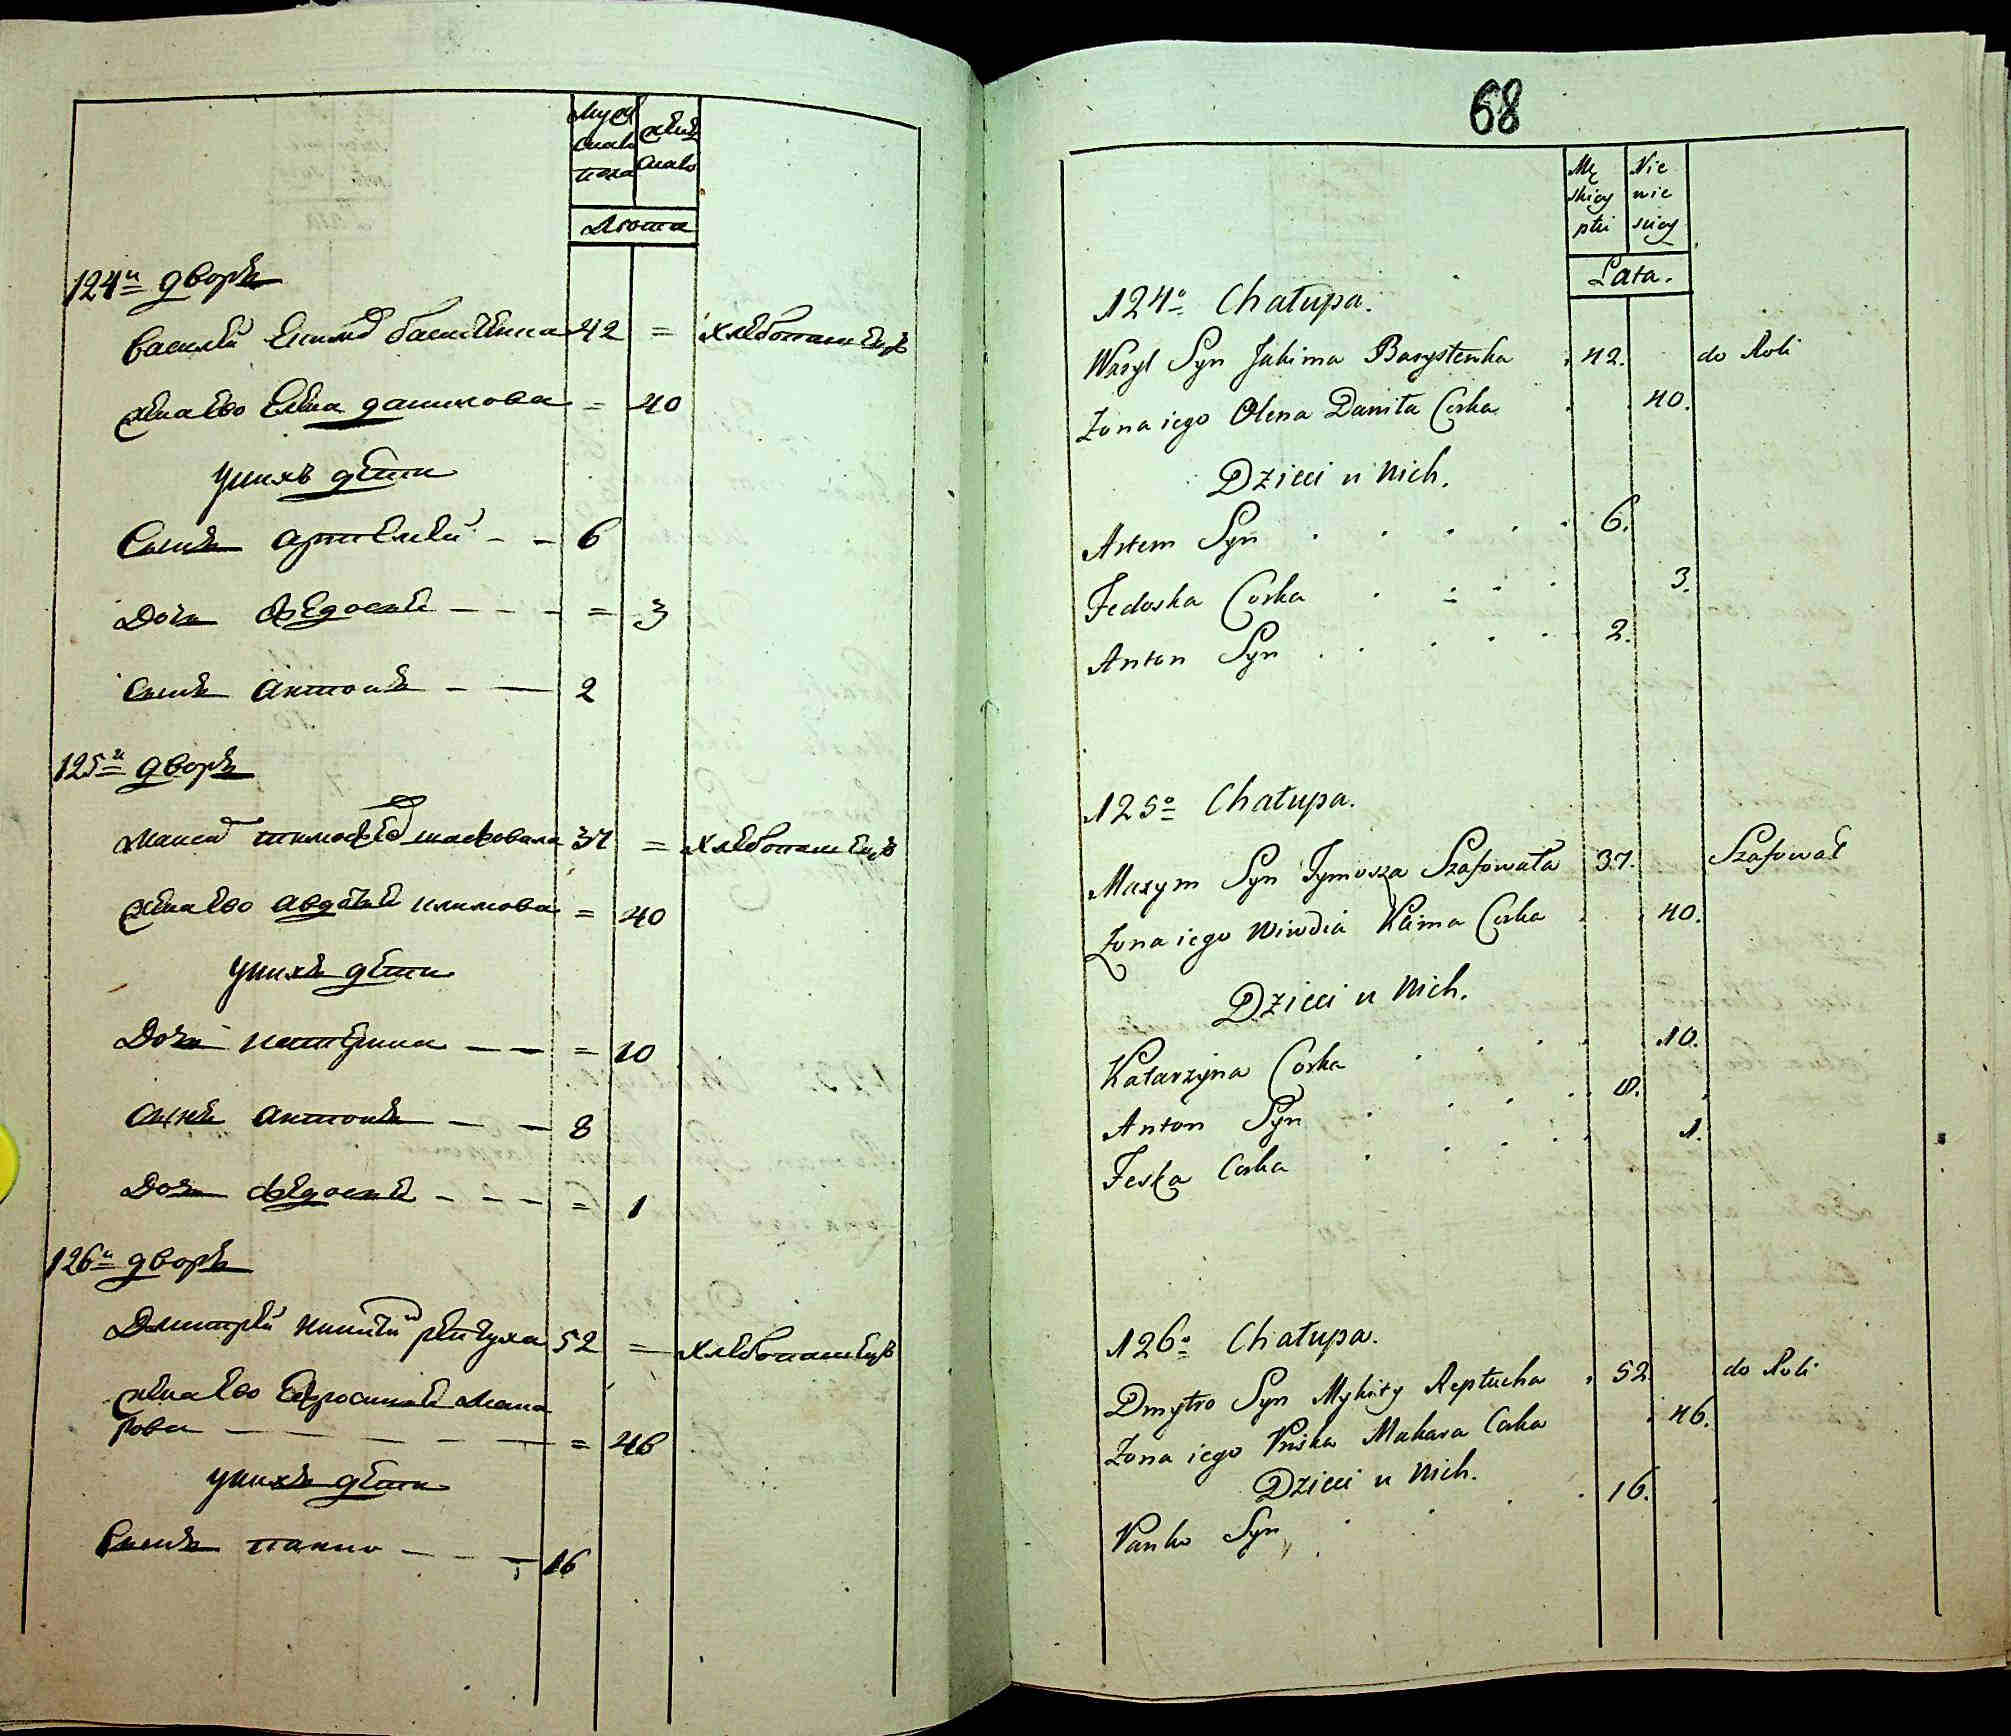 Муже
ска
пола
жен
ска
Лѣта
124й дворъ
Василей Екимов Басистенка 42 = хлебопашецъ
жена ево Елена данилова = 40
у нихъ дети
Сынъ Артемей - - 6
Дочь Федосия - - - = 3
Сынъ Антонъ - — 2
125й дворъ
Максим тимофеев шафовала 37 = хлебопашецъ
жена ево Авдотия климова = 40
у нихъ дети
Дочь катерина — — = 10
Сынъ Антонъ — — 8
Дочь Федосия - - - = 1
126й дворъ
Дмитрей никитин рептуха 52 = хлебопашецъ
жена ево Ефросиния Мака
рова — — — — = 46
у нихъ дети
Сынъ панко — - - 16
68
Mę
skiey
płci
Nie
wie
sciey
Lata.
124o Chałupa.
Wasyl Syn Jakima Basystenka 42. do Roli
Zona iego Olena Daniła Corka 40.
Dzieci u Nich.
Artem Syn . . . . . 6.
Fedoska Corka . . . . 3.
Anton Syn . . . . . 2.
125o Chałupa.
Maxym Syn Tymosza Szafowała 37. Szafował
Zona iego Wiwdia Klima Corka . 40.
Dzieci u Nich.
Katarzyna Corka . . . . 10.
Anton Syn . . . . 8.
Feska Corka . . . . 1.
126o Chałupa.
Dmytro Syn Mykity Reptucha . 52 do Roli
Zona iego Pryska Makara Corka . 46.
Dzieci u Nich.
Panko Syn . . . . 16.